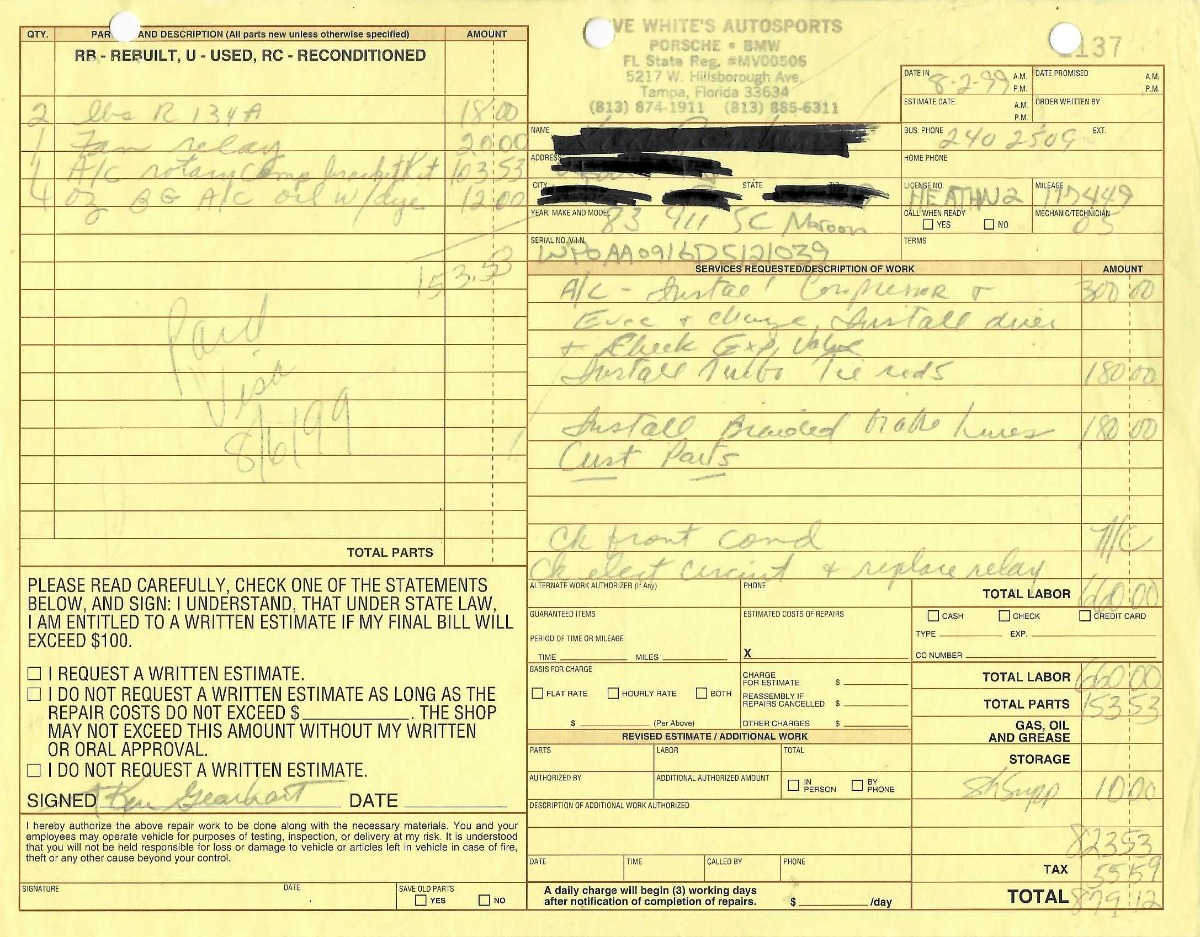 QTY. PAR AND DESCRIPTION (All parts new unless otherwise specified) AMOUNT
RB - REBUILT, U - USED, RC - RECONDITIONED
2 lbs R 134A 18.00
1 Fan relay 20.00
1 A/C rotary comp bracket kit 103.53
4 oz BG A/C oil w/dye 12.00
153.53
Paid
Visa
8/6/99
TOTAL PARTS
PLEASE READ CAREFULLY, CHECK ONE OF THE STATEMENTS
BELOW, AND SIGN: I UNDERSTAND, THAT UNDER STATE LAW,
I AM ENTITLED TO A WRITTEN ESTIMATE IF MY FINAL BILL WILL
EXCEED $100.
☐ I REQUEST A WRITTEN ESTIMATE.
☐ I DO NOT REQUEST A WRITTEN ESTIMATE AS LONG AS THE
REPAIR COSTS DO NOT EXCEED $________. THE SHOP
MAY NOT EXCEED THIS AMOUNT WITHOUT MY WRITTEN
OR ORAL APPROVAL.
☐ I DO NOT REQUEST A WRITTEN ESTIMATE.
SIGNED Ken Gearhart DATE
I hereby authorize the above repair work to be done along with the necessary materials. You and your
employees may operate vehicle for purposes of testing, inspection, or delivery at my risk. It is understood
that you will not be held responsible for loss or damage to vehicle or articles left in vehicle in case of fire,
theft or any other cause beyond your control.
SIGNATURE DATE SAVE OLD PARTS
☐ YES ☐ NO
VE WHITE'S AUTOSPORTS
PORSCHE • BMW
FL State Reg. #MV00506
5217 W. Hillsborough Ave.
Tampa, Florida 33634
(813) 874-1911 (813) 885-6311
1137
DATE IN 8-2-99 A.M. P.M. DATE PROMISED A.M. P.M.
ESTIMATE DATE A.M. P.M. ORDER WRITTEN BY
NAME
BUS. PHONE 240 2509 EXT.
ADDRESS
HOME PHONE
CITY STATE
LICENSE NO. HEATHN2 MILEAGE 117449
YEAR, MAKE AND MODEL 83 911 SC Maroon
CALL WHEN READY ☐ YES ☐ NO MECHANIC/TECHNICIAN 05
SERIAL NO./V.I.N. WP0AA0916DS121039
TERMS
SERVICES REQUESTED/DESCRIPTION OF WORK AMOUNT
A/C - Install Compressor + 300.00
Evac + charge, Install drier
+ Check Exp. Valve
Install Turbo Tie rods 180.00
Install Braided brake lines 180.00
Cust Parts
Ck front cond N/C
Ck elect circuit + replace relay
ALTERNATE WORK AUTHORIZER (If Any) PHONE
TOTAL LABOR 660.00
GUARANTEED ITEMS ESTIMATED COSTS OF REPAIRS
☐ CASH ☐ CHECK ☐ CREDIT CARD
PERIOD OF TIME OR MILEAGE
TYPE EXP.
TIME MILES X
CC NUMBER
BASIS FOR CHARGE
☐ FLAT RATE ☐ HOURLY RATE ☐ BOTH
$ (Per Above)
CHARGE
FOR ESTIMATE $
REASSEMBLY IF
REPAIRS CANCELLED $
OTHER CHARGES $
TOTAL LABOR 660.00
TOTAL PARTS 153.53
GAS, OIL
AND GREASE
REVISED ESTIMATE / ADDITIONAL WORK
PARTS LABOR TOTAL
STORAGE
AUTHORIZED BY ADDITIONAL AUTHORIZED AMOUNT ☐ IN PERSON ☐ BY PHONE
Sh Supp 10.00
DESCRIPTION OF ADDITIONAL WORK AUTHORIZED
823.53
DATE TIME CALLED BY PHONE
TAX 55.59
A daily charge will begin (3) working days
after notification of completion of repairs. $ /day
TOTAL 879.12